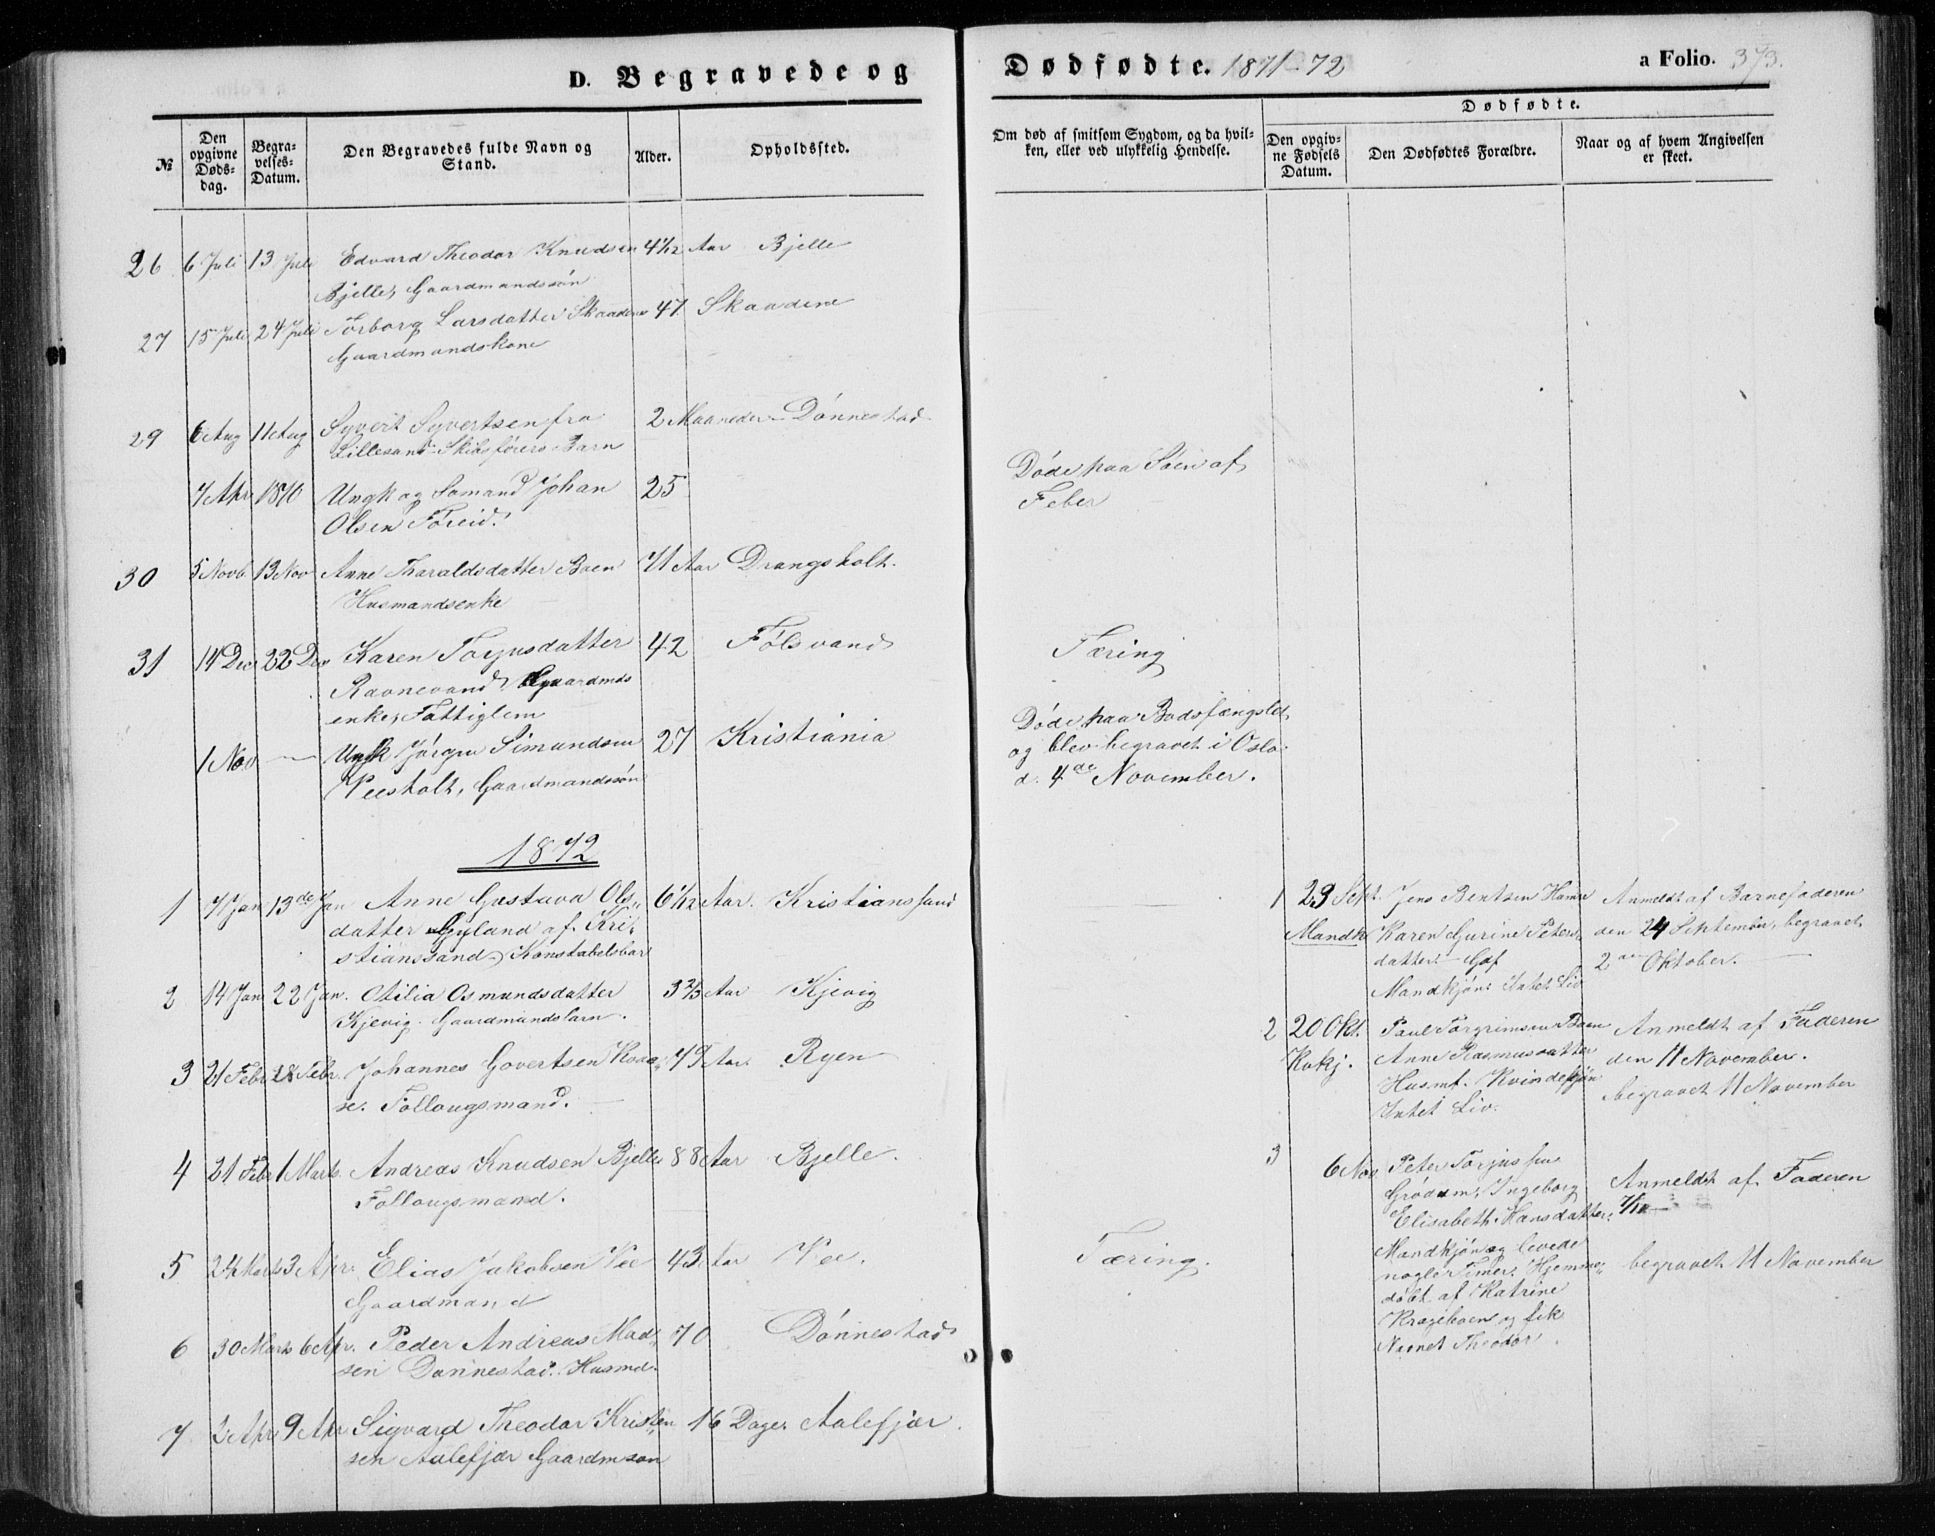 D. Begravede og
№
Den opgivne Døds-dag.
Begra-velses-Datum.
Den Begravedes fulde Navn og Stand.
Alder.
Opholdssted.
26 6 Juli 13 Juli Edvard Theodor Knudsen 4 1/2 Aar Bjelle
Bjelle, Gaardmandssøn
27 15 Juli 24 Juli Torborg Larsdatter Skaadene 47 Skaadene
Gaardmandskone
29 6 Aug 11 Aug Syvert Syvertsen fra 2 Maaneder Dønnestad
Lillesand Skibsførers Barn
7 Apr 1870 Ungk og Sømand Johan 25
Olsen Foreid.
30 5 Novb 13 Nov Anne Tharaldsdatter Boen 71 Aar Drangsholt.
Husmandsenke
31 14 Dec 22 Dec Karen Torjusdatter 42 Følsvand
Ravnevand, Gaardmds
enke, Fattiglem
1 Nov — Ungk Jørgen Simundsen 27 Kristiania
Veesholt, Gaardmandssøn
1872
1 7 Jan 13de Jan Anne Gustava Ols- 6 1/2 Aar. Kristianssand
datter Gyland af Kri-
stianssand, Konstabelsbar
2 14 Jan 22 Jan. Otilia Osmundsdatter 3 2/3 Aar Kjevig
Kjevig. Gaardmandsbarn.
3 21 Febr 28 Febr. Johannes Govertsen Kaaa- 79 Aar. Ryen
se. Føllougsmand.
4 21 Febr 1 Marts. Andreas Knudsen Bjelle 88 Aar Bjelle.
Follougsmand.
5 24 Marts 3 Apr. Elias Jakobsen Vee 43 Aar Vee.
Gaardmand
6 30 Marts 6 Apr. Peder Andreas Mad- 70 Dønnestad
sen Dønnestad. Husmd.
7 2 Apr 9 Apr Sigvard Theodor Kristen 16 Dage. Aalefjær.
sen Aalefjær Gaardmson
Dødfødte. 1871-72
a Folio. 373.
Om død af smitsom Sygdom, og da hvil-ken, eller ved ulykkelig Hendelse.
Dødfødte.
Den opgiv-ne Fødsels Datum.
Den Dødfødtes Forældre.
Naar og af hvem Angivelsen er skeet.
Døde paa Søen af
Feber
Tæring
Døde paa Bodsfængslet,
og blev begravet i Oslo
d. 4de November.
1 23 Sept. Jens Bentsen Hamre Anmeldt af Barnefaderen
Mandk Karen Gurine Peters- den 24 September, begravet
datter Gaf 2den Oktober.
Mandkjøn: Intet Liv
2 20 Okt. Paul Torgrimsen Boen Anmeldt af Faderen
Kvkj. Anne Rasmusdatter den 11 November.
Husmf. Kvindekjøn begravet 11 November
Intet Liv.
3 6 Nov Peter Torjussen Anmeldt af Faderen
Grødum, Ingeborg
Elisabeth Hansdatter: 7/11
Mandkjøn og levede
nogle Timer, Hjemme- begravet 11 November
døbt af Katrine
Krageboen og fik
Navnet Theodor.
Tæring.